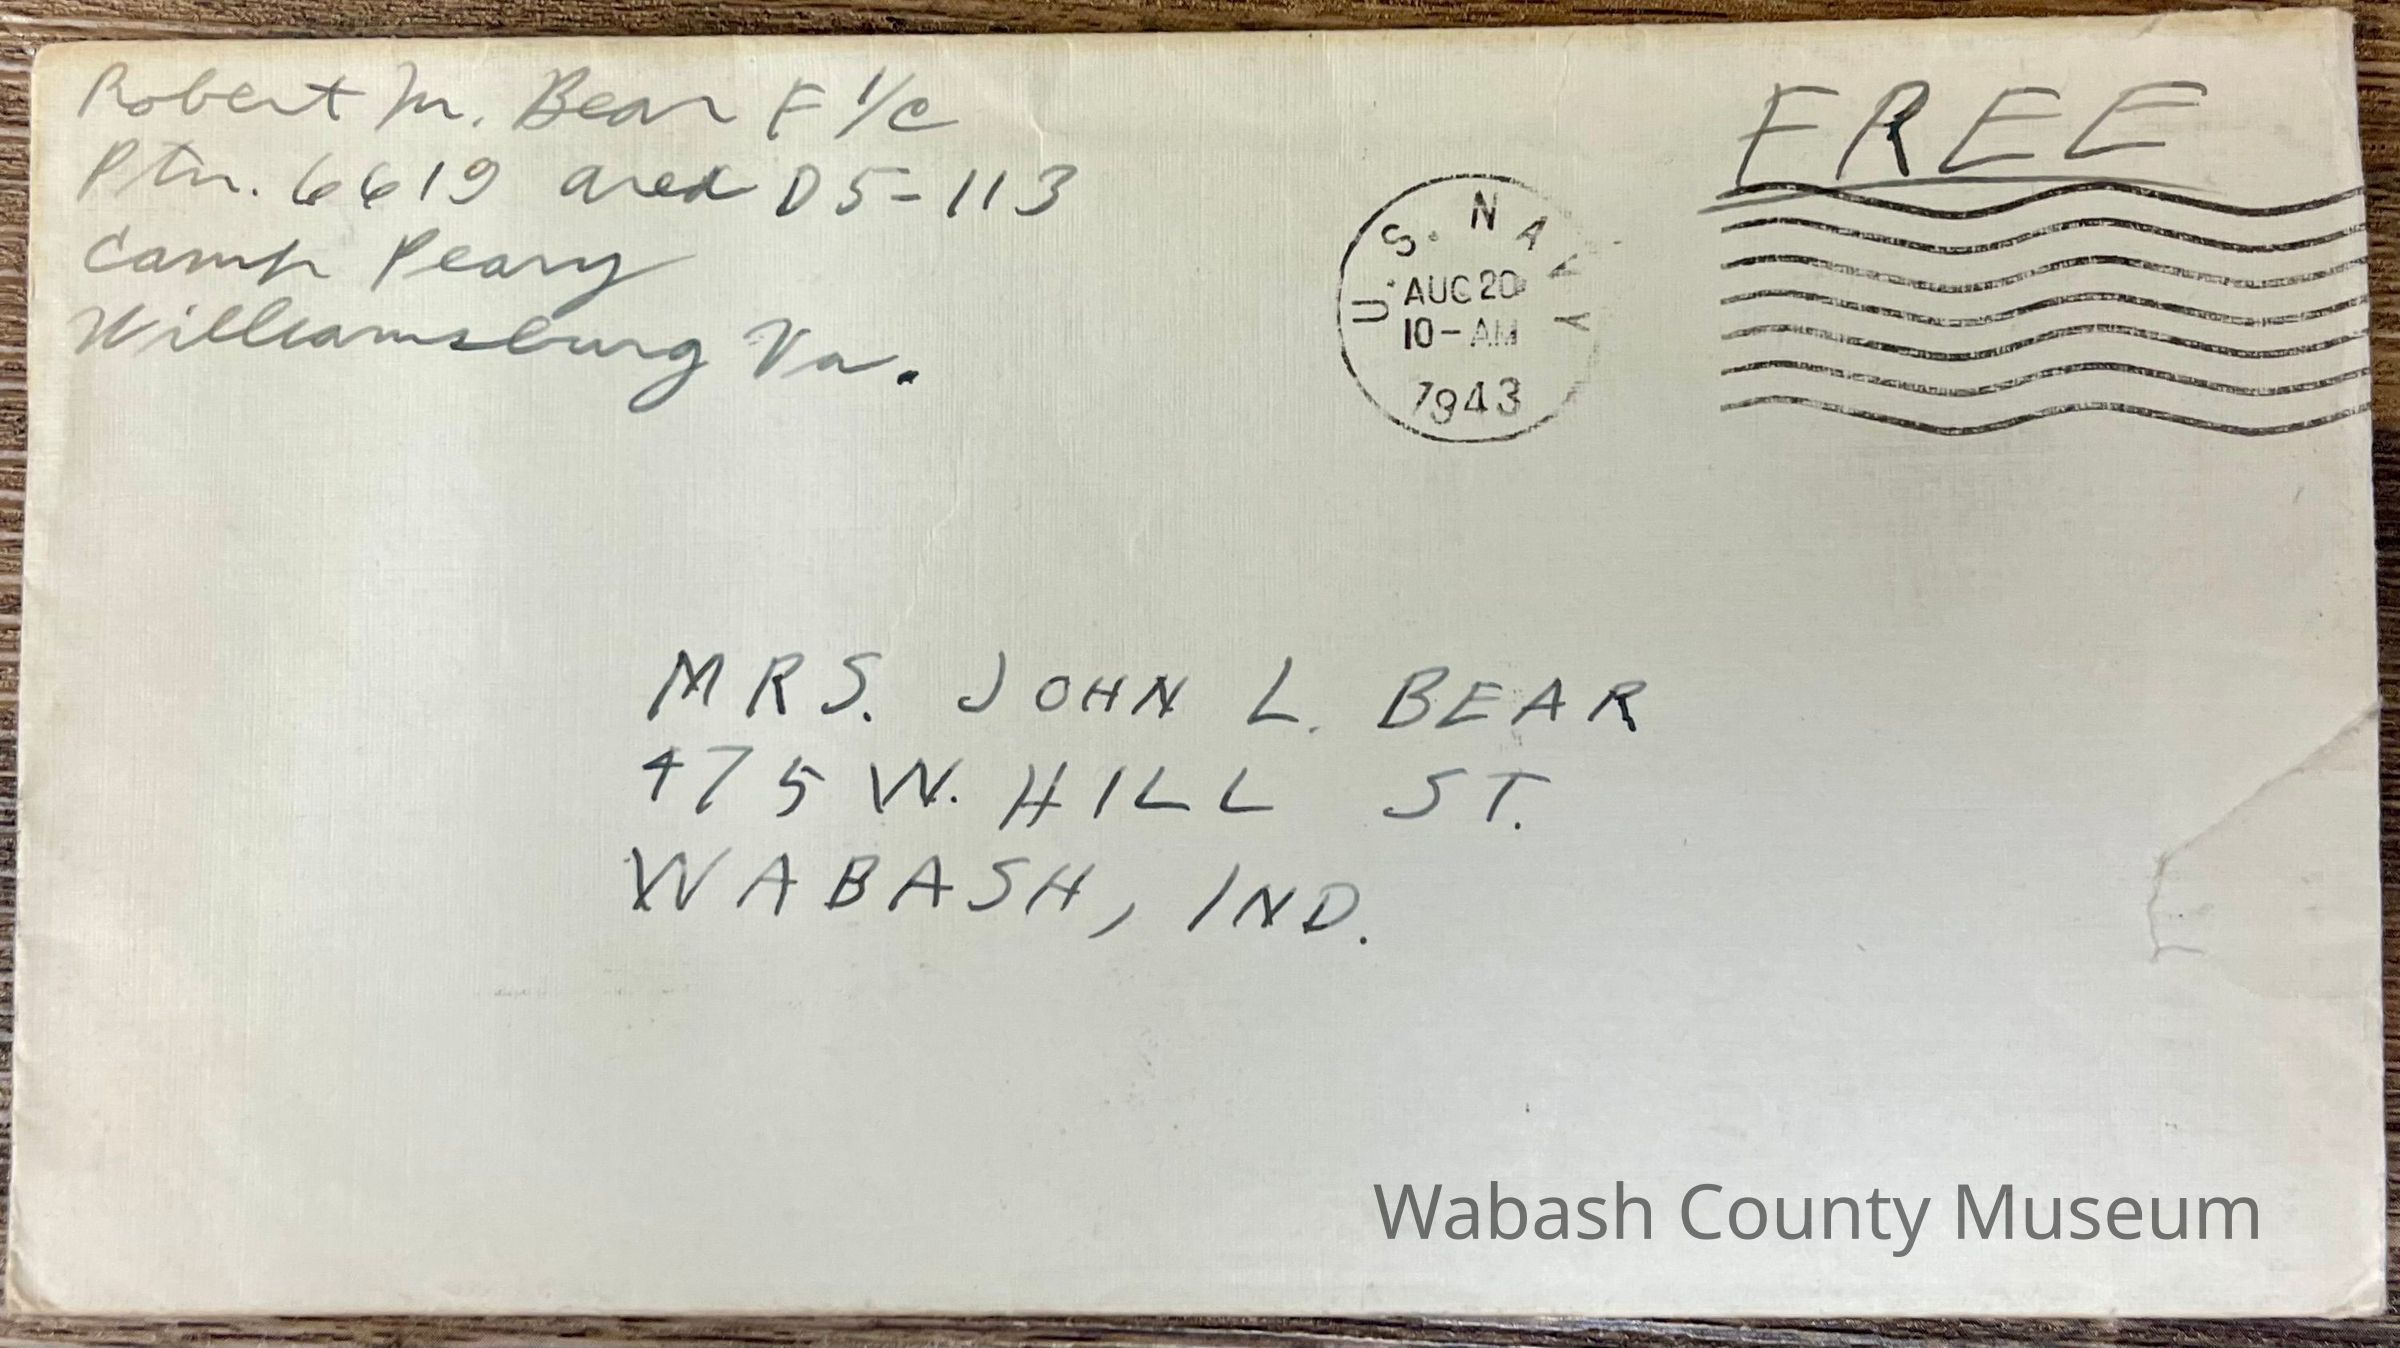 Robert M. Bear F 1/c
Ptn. 6619 area D5-113
Camp Peary
Williamsburg Va.
FREE
U.S. NAVY
AUG 20
10-AM
1943
MRS. JOHN L. BEAR
475 W. HILL ST.
WABASH, IND.
Wabash County Museum